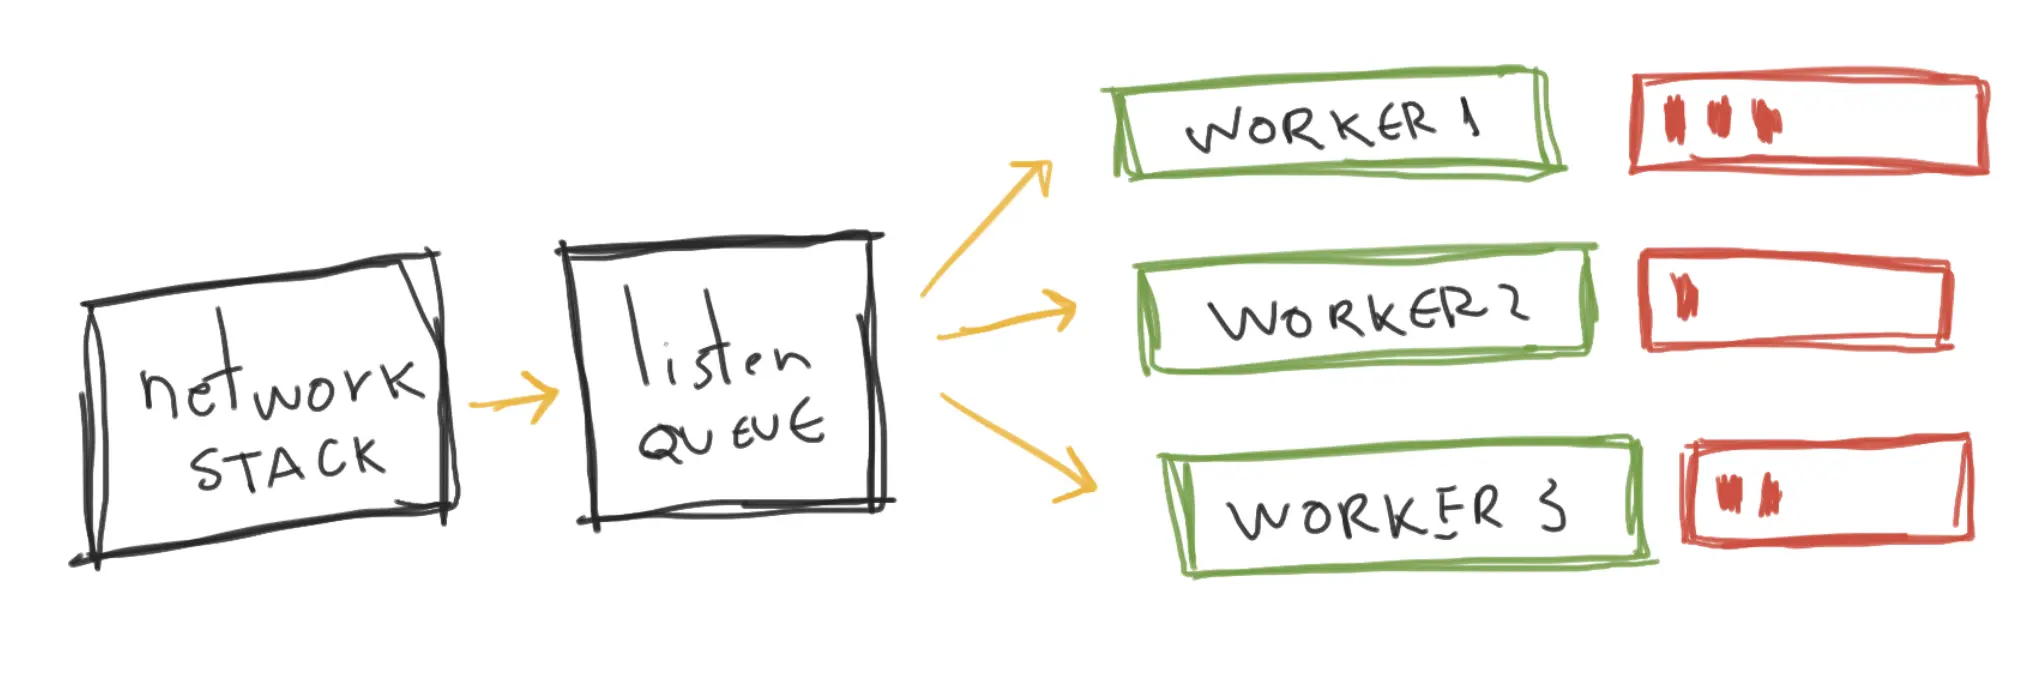 network
STACK
listen
QUEUE
WORKER 1
WORKER 2
WORKER 3